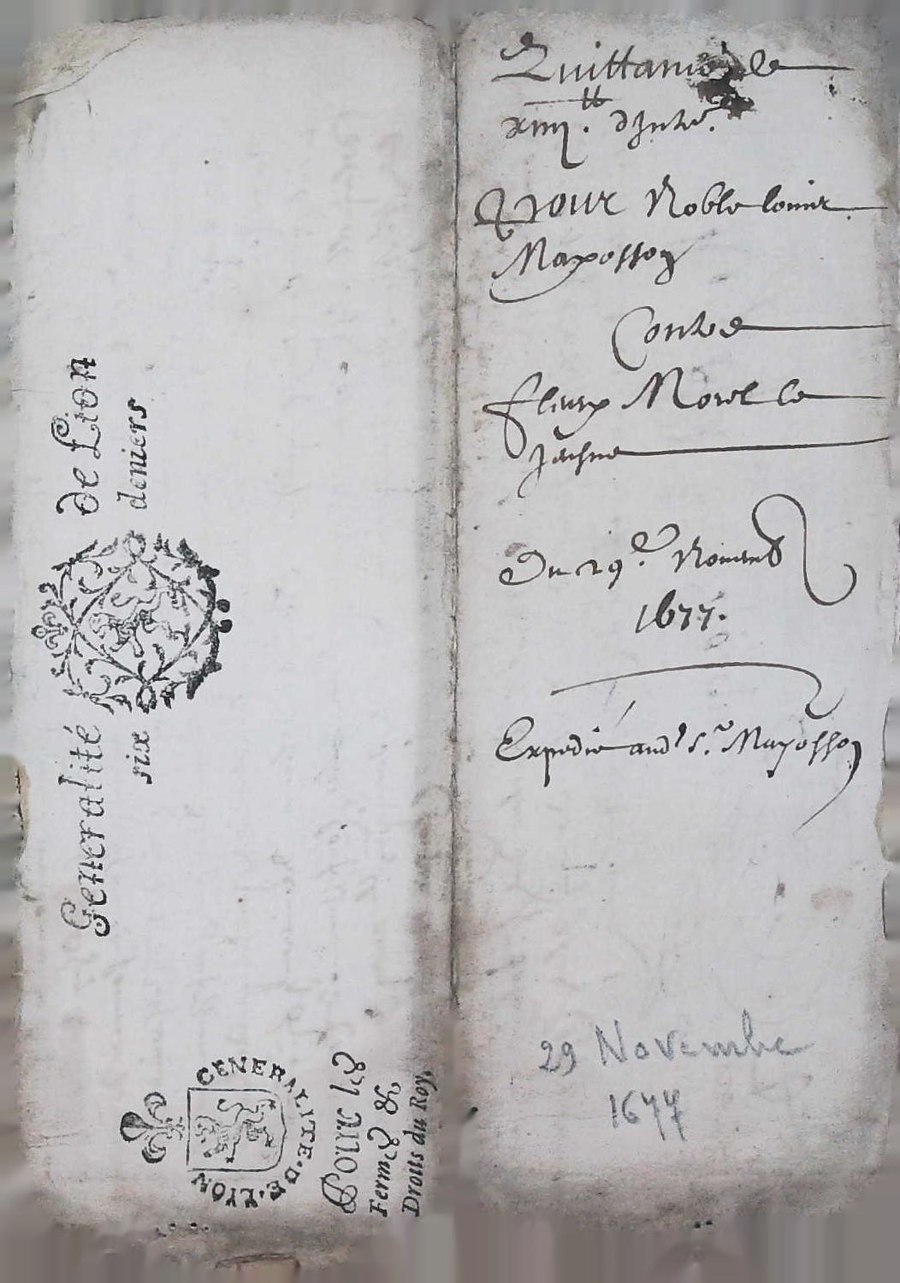 Generalité de Lion
six deniers
GENERALITE·DE·LYON
Pour les
Fermes &
Droits du Roy.
Quittance de
xiiii. tt
Pour Noble
Mayosson
Contre
fleury Morel le
jeusne
Du 29.e Novemb
1677.
Expedié aud. Sr. Mayosson
29 Novembre
1677